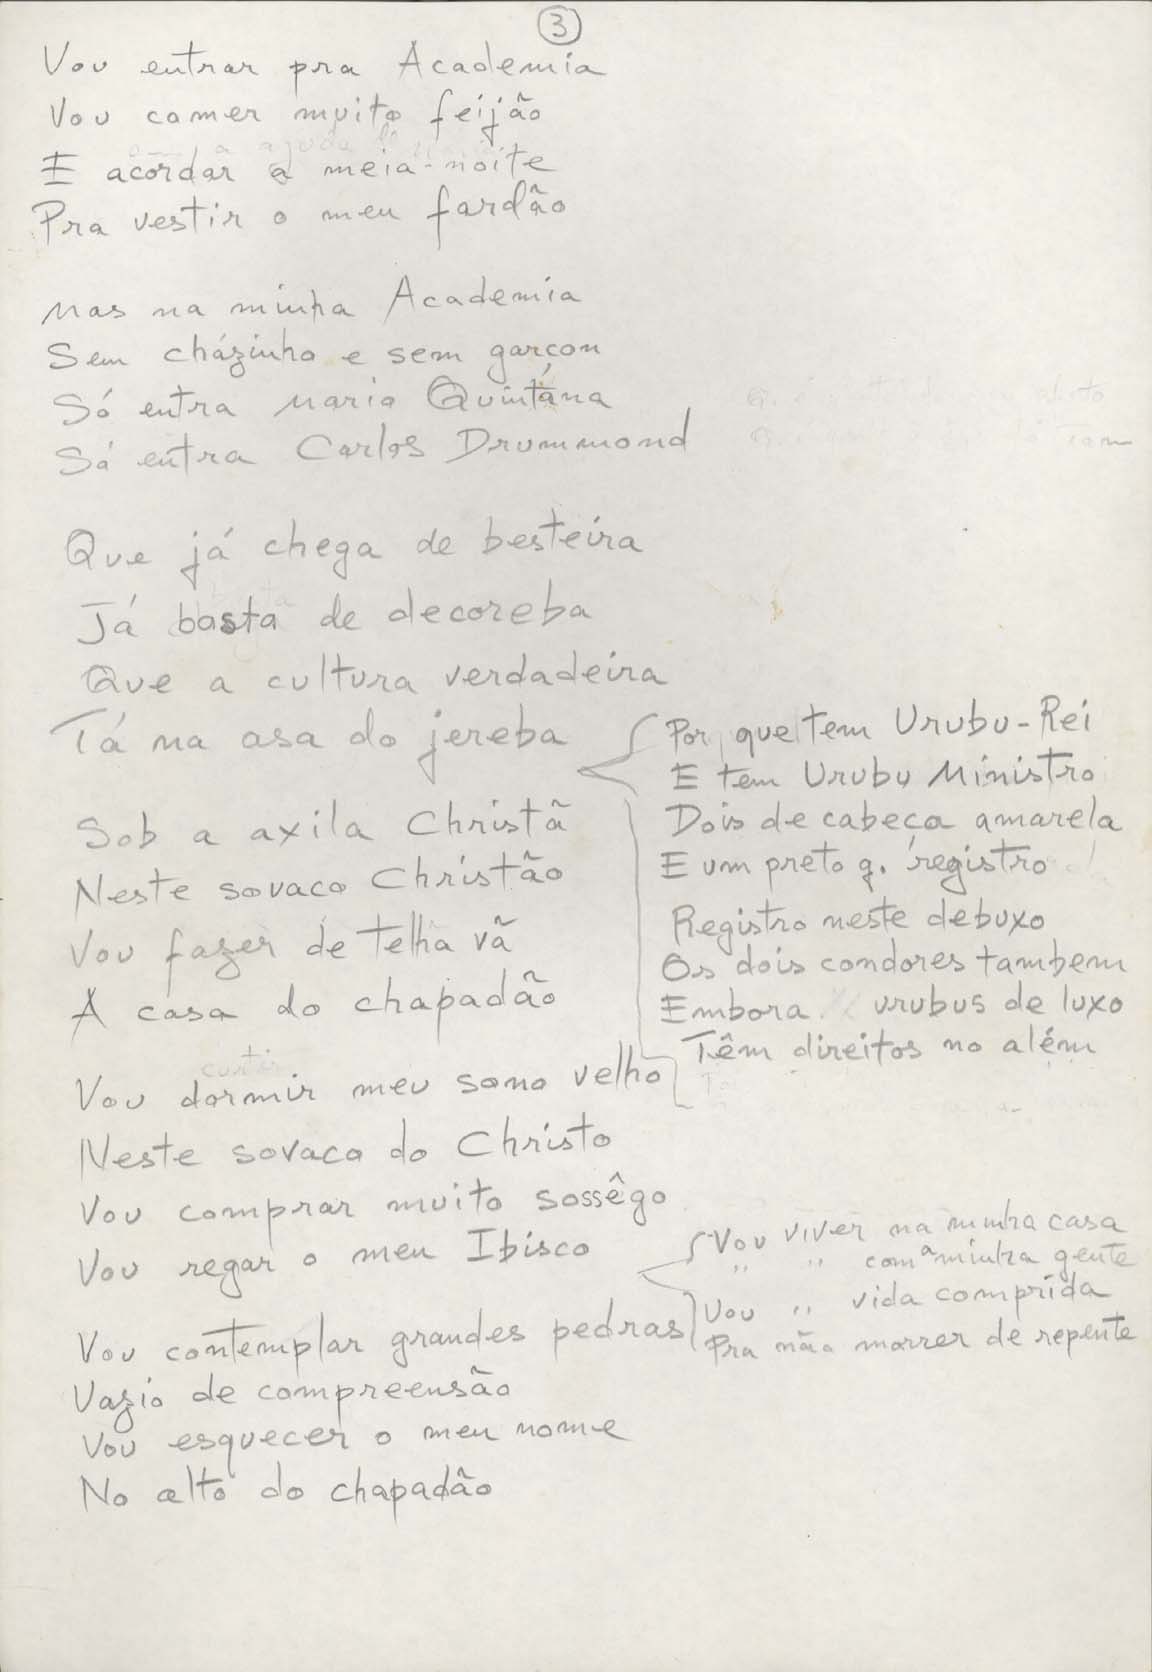 3
Vou entrar pra Academia
Vou comer muito feijão
E acordar a meia-noite
Pra vestir o meu fardão
Mas na minha Academia
Sem cházinho e sem garçon
Só entra Mario Quintána
Só entra Carlos Drummond
Que já chega de besteira
Já basta de decoreba
Que a cultura verdadeira
Tá na asa do jereba
Por que tem Urubu-Rei
E tem Urubu Ministro
Dois de cabeça amarela
E um preto q. registro
Registro neste debuxo
Os dois condores tambem
Embora urubus de luxo
Têm direitos no além
Sob a axila Christã
Neste sovaco Christão
Vou fazer de telha vã
A casa do chapadão
curtir
Vou dormir meu sono velho
Neste sovaco do Christo
Vou comprar muito sossêgo
Vou regar o meu Ibisco
Vou viver na minha casa
" " com a minha gente
Vou " vida comprida
Pra não morrer de repente
Vou contemplar grandes pedras
Vazio de compreensão
Vou esquecer o meu nome
No alto do chapadão